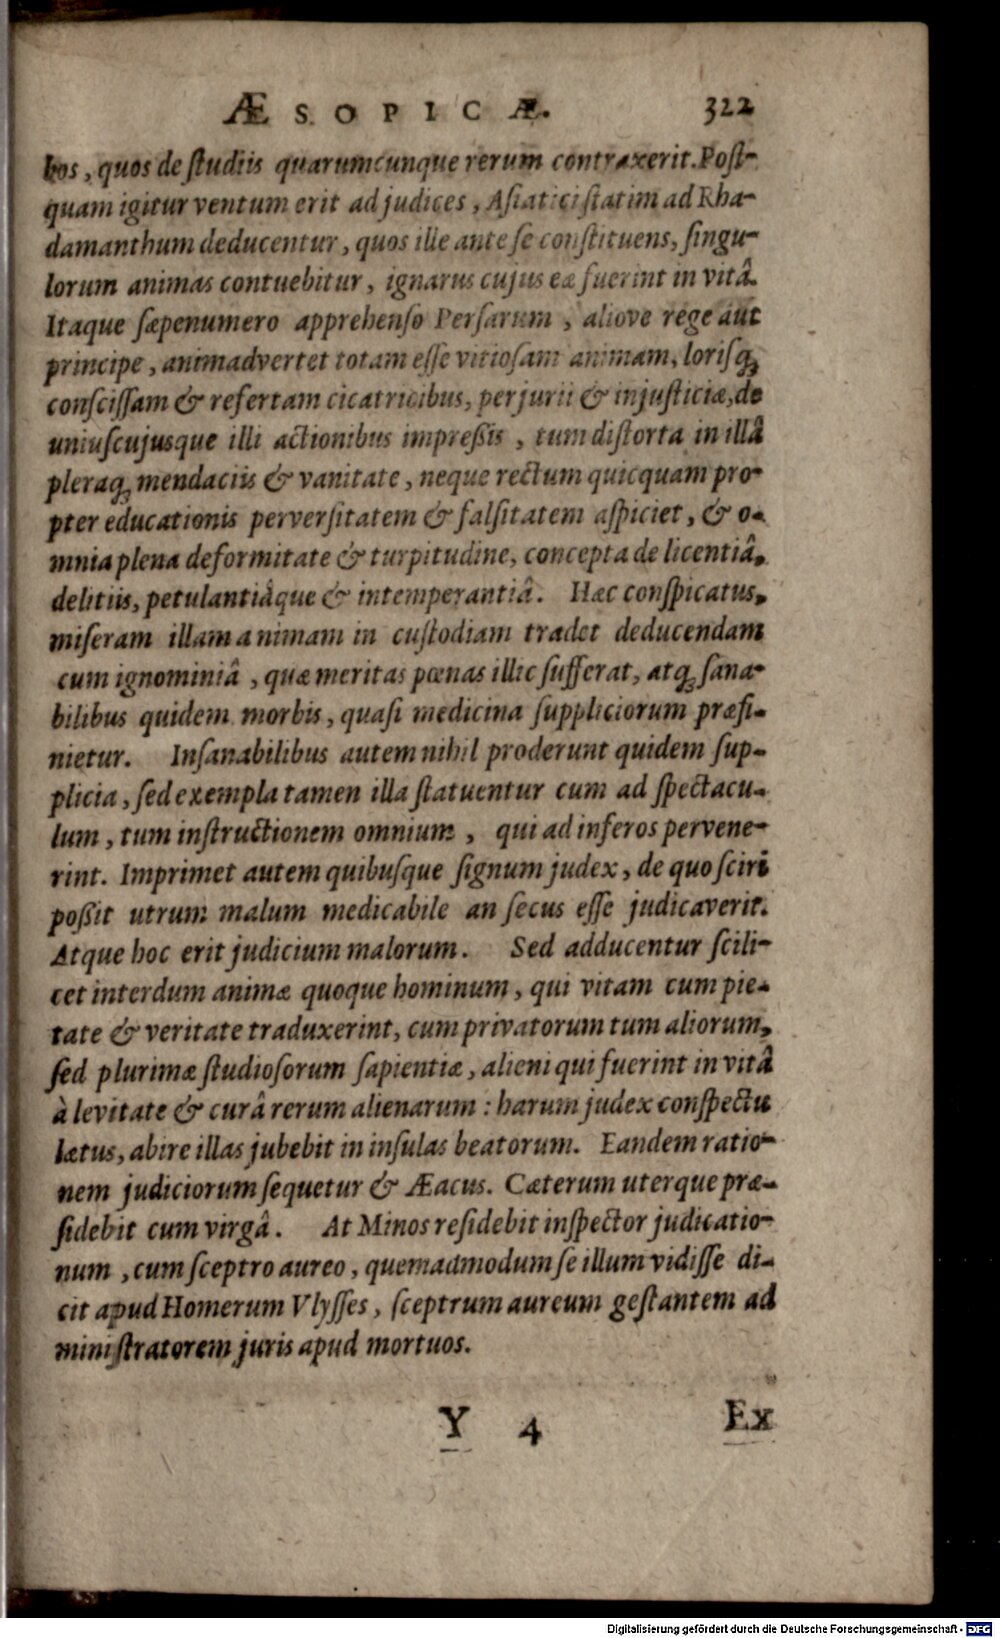 ÆSOPICÆ. 322
bos, quos de ſtudiis quarumcunque rerum contraxerit. Poſt-
quam igitur ventum erit ad judices, Aſiatici ſtatim ad Rha-
damanthum deducentur, quos ille ante ſe conſtituens, ſingu-
lorum animas contuebitur, ignarus cujus eæ fuerint in vitâ.
Itaque ſæpenumero apprehenſo Perſarum, aliove rege aut
principe, animadvertet totam eſſe vitioſam animam, loriſq́;
conſciſſam & refertam cicatricibus, perjurii & injuſticiæ, de
uniuſcujusque illi actionibus impreßis, tum diſtorta in illâ
pleraq́; mendaciis & vanitate, neque rectum quicquam pro-
pter educationis perverſitatem & falſitatem aſpiciet, & o-
mnia plena deformitate & turpitudine, concepta de licentiâ,
delitiis, petulantiâque & intemperantiâ. Hæc conſpicatus,
miſeram illam animam in cuſtodiam tradet deducendam
cum ignominiâ, quæ meritas pœnas illic ſufferat, atq́; ſana-
bilibus quidem morbis, quaſi medicina ſuppliciorum præfi-
nietur. Inſanabilibus autem nihil proderunt quidem ſup-
plicia, ſed exempla tamen illa ſtatuentur cum ad ſpectacu-
lum, tum inſtructionem omnium, qui ad inferos pervene-
rint. Imprimet autem quibuſque ſignum judex, de quo ſciri
poßit utrum malum medicabile an ſecus eſſe judicaverit.
Atque hoc erit judicium malorum. Sed adducentur ſcili-
cet interdum animæ quoque hominum, qui vitam cum pie-
tate & veritate traduxerint, cum privatorum tum aliorum,
ſed plurimæ ſtudioſorum ſapientiæ, alieni qui fuerint in vitâ
à levitate & curâ rerum alienarum: harum judex conſpectu
lætus, abire illas jubebit in inſulas beatorum. Eandem ratio-
nem judiciorum ſequetur & Æacus. Cæterum uterque præ-
ſidebit cum virgâ. At Minos reſidebit inſpector judicatio-
num, cum ſceptro aureo, quemadmodum ſe illum vidiſſe di-
cit apud Homerum Vlyſſes, ſceptrum aureum geſtantem ad
miniſtratorem juris apud mortuos.
Y 4 Ex
Digitalisierung gefördert durch die Deutsche Forschungsgemeinschaft - DFG